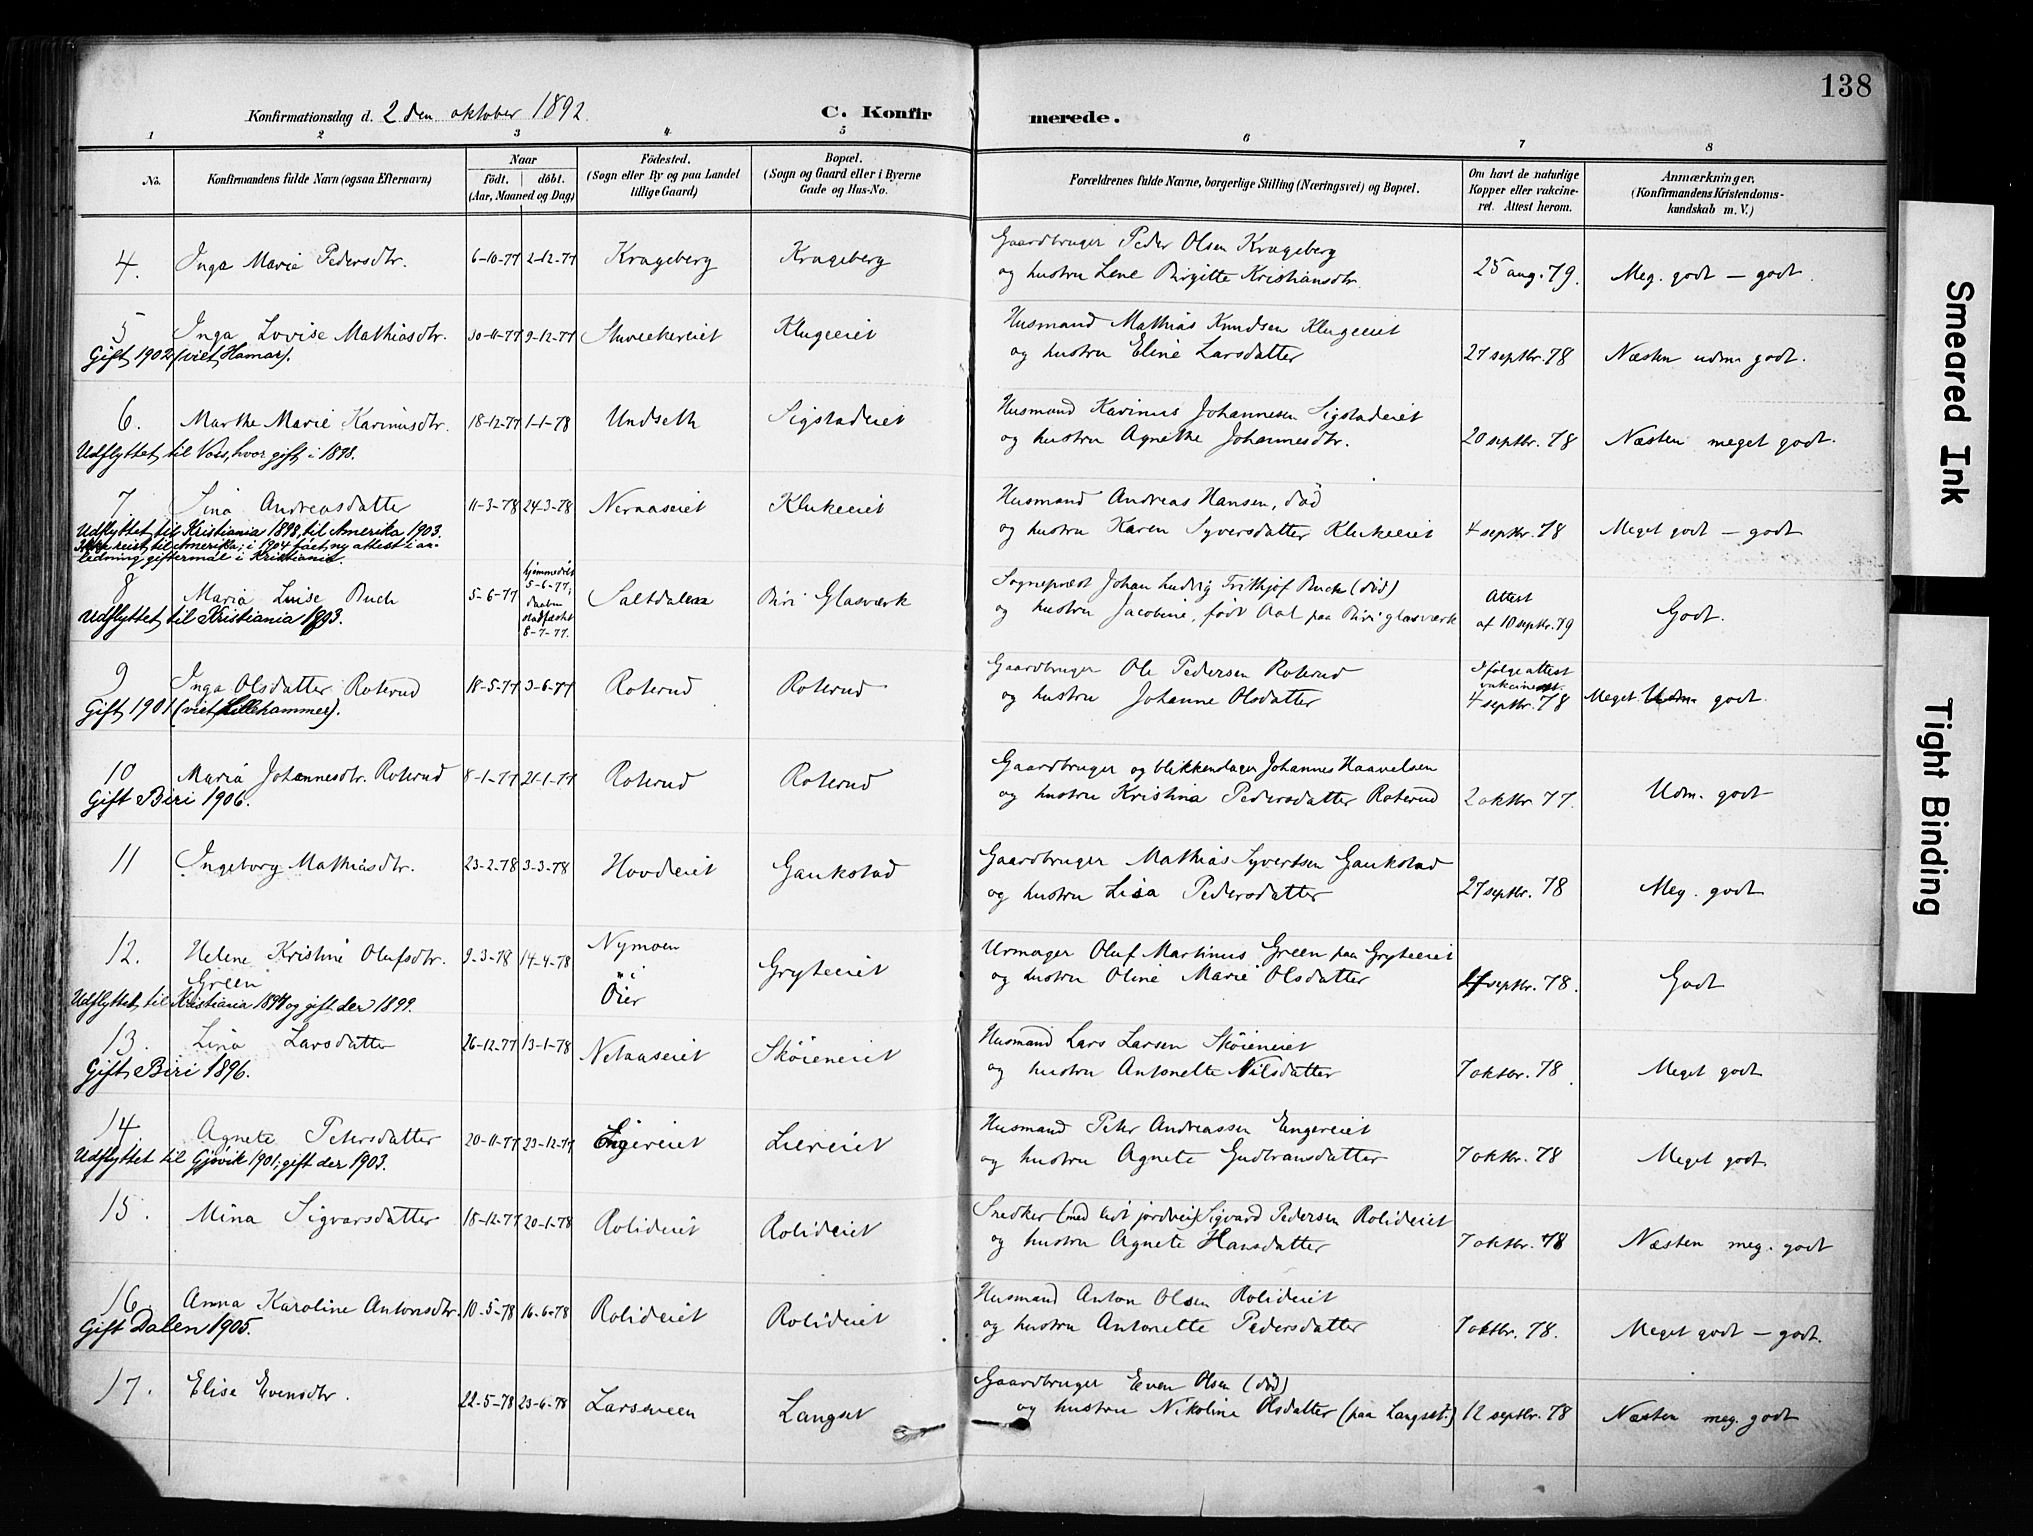 138
Konfirmationsdag d. 2 den oktober 1892.
C. Konfirmerede.
1 2 3 4 5 6 7 8
No.
Konfirmandens fulde Navn (ogsaa Efternavn)
Naar
födt. döbt.
(Aar, Maaned og Dag)
Födested.
(Sogn eller By og paa Landet
tillige Gaard)
Bopæl.
(Sogn og Gaard eller i Byerne
Gade og Hus-No.
Forældrenes fulde Navne, borgerlige Stilling (Næringsvei) og Bopæl.
Om havt de naturlige
Kopper eller vakcine-
ret. Attest herom.
Anmærkninger.
(Konfirmandens Kristendoms-
kundskab m. V.)
4. Inga Marie Pedersdtr. 6-10-77 2-12-77 Krageberg Krageberg
Gaardbruger Peder Olsen Krageberg
og hustru Lene Birgitte Kristiansdtr. 25 aug. 79. Meg. godt – godt.
5 Inga Lovise Mathiasdtr. 30-11-77 9-12-77 Klugeeiet
Gift 1902 (viet Hamar).
Husmand Mathias Knudsen Klugeeiet
og hustru Eline Larsdatter 27 septbr. 78 Næsten udm. godt.
6. Marthe Marie Karinusdtr. 18-12-77 1-1-78 Undseth Sigstadeiet
Udflyttet til Voss, hvor gift i 1898.
Husmand Karinus Johannesen Sigstadeiet
og hustru Agnethe Johannesdtr. 20 septbr. 78 Næsten meget godt.
7. Sina Andreasdatter 11-3-78 24-3-78 Neraaseiet Klukeeiet
Udflyttet til Kristiania 1898, til Amerika 1903.
Ikke reist til Amerika; i 1904 fået ny attest i an-
ledning giftermål i Kristiania.
Husmand Andreas Hansen, död
og hustru Karen Syversdatter Klukeeiet 4 septbr. 78 Meget godt – godt
8 Maria Luise Buch 5-6-77 hjemmedöbt
5-6-77;
daaben
stadfæstet
8-7-77. Saltdalen Biri Glasværk
Udflyttet til Kristiania 1893.
Sogneprest Johan Ludvig Frithjof Buch (död)
og hustru Jacobine, födt Aal paa Biri glasværk
Attest
af 10 septbr. 79 Godt.
9 Inga Olsdatter Roterud 18-5-77 3-6-77 Roterud Roterud
Gift 1901 (viet Lillehammer).
Gaardbruger Ole Pedersen Roterud
og hustru Johanne Olsdatter
Ifølge attest
vakcineret.
4 septbr. 78 Meget godt.
10 Maria Johannesdtr. Roterud 8-1-77 21-1-77 Roterud Roterud
Gift Biri 1906.
Gaardbruger og blikkenslager Johannes Haavelsen
og hustru Kristina Pedersdatter Roterud 2 oktbr. 77. Udm. godt
11 Ingeborg Mathiasdtr. 23-2-78 3-3-78 Hovdeiet Gaukstad
Gaardbruger Mathias Syvertsen Gaukstad
og hustru Lisa Pedersdatter 27 septbr. 78 Meg. godt
12. Helene Kristine Olufsdtr. 9-3-78 14-4-78 Nymoen
i
Öier Gryteeiet
Green
Udflyttet til Kristiania 1897 og gift der 1899.
Urmager Oluf Martinus Green paa Gryteeiet
og hustru Oline Marie Olsdatter septbr. 78. Godt
13. Lina Larsdatter 26-12-77 13-1-78 Sköieneiet
Gift Biri 1896.
Husmand Lars Larsen Sköieneiet
og hustru Antonette Nilsdatter 7 oktbr. 78. Meget godt
14. Agnete Petersdatter 20-11-77 23-12-77 Engereiet Liereiet
Udflyttet til Gjøvik 1901; gift der 1903.
Husmand Peter Andreassen Engereiet
og hustru Agnete Gudbransdatter 7 oktbr. 78 Meget godt
15. Mina Sigvarsdatter 18-12-77 20-1-78 Rolideiet Rolideiet
Snedker (med lidt jordvei) Sigvard Pedersen Rolideiet
og hustru Agnete Hansdatter 7 oktbr. 78 Næsten meg. godt
16 Anna Karoline Antonsdtr. 10-5-78 16-6-78 Rolideiet Rolideiet
Gift Dalen 1905.
Husmand Anton Olsen Rolideiet
og hustru Antonette Pedersdatter 7 oktbr. 78. Meget godt – godt.
17. Elise Evensdtr. 22-5-78 23-6-78 Larssveen Langset
Gaardbruger Even Olsen (död)
og hustru Nikoline Olsdatter (paa Langset.) 12 septbr. 78 Næsten meg. godt
Smeared Ink
Tight Binding